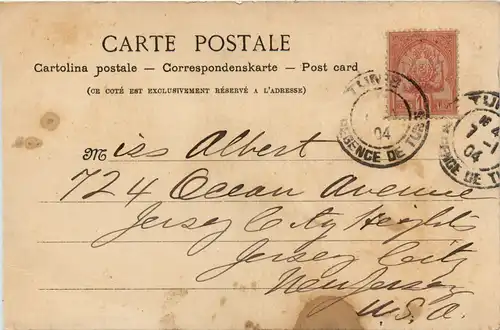 CARTE POSTALE
Cartolina postale — Correspondenskarte — Post card
(CE COTÉ EST EXCLUSIVEMENT RÉSERVÉ A L'ADRESSE)
TUNIS
04
REGENCE DE TUNIS
TUNIS
7
04
REGENCE DE TUNIS
Miss Albert
724 Ocean Avenue
Jersey City Heights
Jersey City
New Jersey
U.S.A.